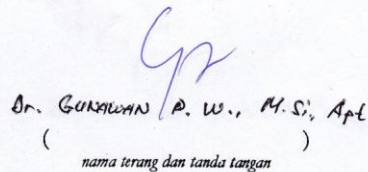 Dr. GUNAWAN P. W., M.Si, Apt
( )
nama terang dan tanda tangan